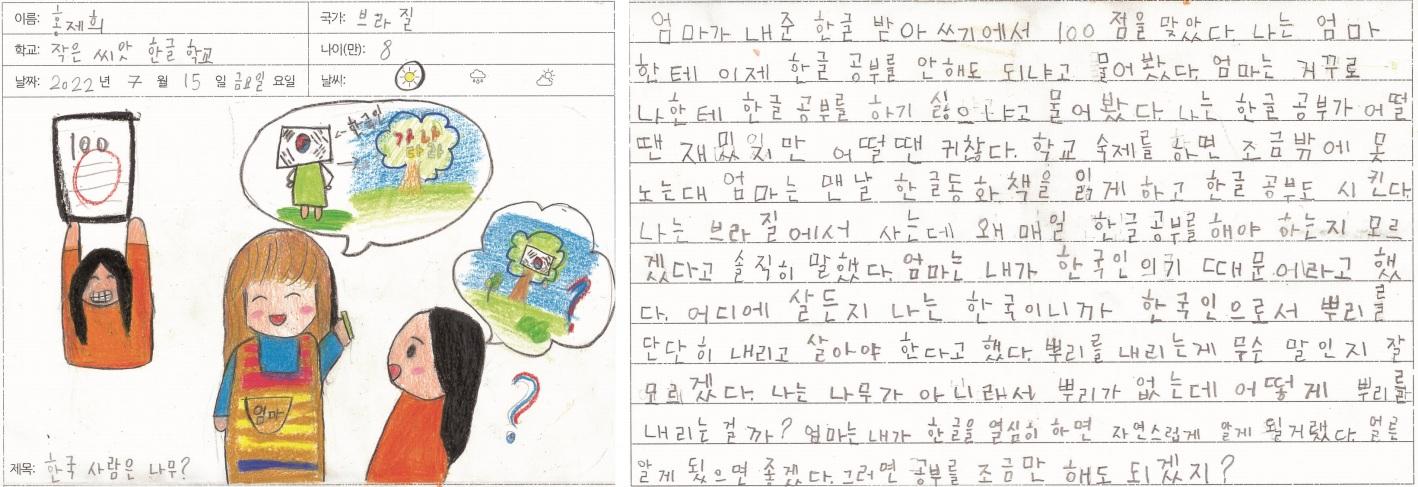 이름: 홍제희
국가: 브라질
학교: 작은 씨앗 한글 학교
나이(만): 8
날짜: 2022년 7 월 15 일 금요일 요일
날씨:
100
한국인
가나
다라
엄마
?
?
제목: 한국 사람은 나무?
엄마가 내준 한글 받아쓰기에서 100 점을 맞았다. 나는 엄마
한테 이제 한글 공부를 안해도 되냐고 물어봤다. 엄마는 거꾸로
나한테 한글 공부를 하기 싫으냐고 물어봤다. 나는 한글 공부가 어떨
땐 재밌지만 어떨땐 귀찮다. 학교 숙제를 하면 조금밖에 못
노는대 엄마는 맨날 한글동화 책을 읽게 하고 한글 공부도 시킨다.
나는 브라질에서 사는데 왜 매일 한글 공부를 해야 하는지 모르
겠다고 솔직히 말했다. 엄마는 내가 한국인 의기 때문에라고 했
다. 어디에 살든지 나는 한국이니까 한국인으로서 뿌리를
단단히 내리고 살아야 한다고 했다. 뿌리를 내리는게 무슨 말인지 잘
모르겠다. 나는 나무가 아니라서 뿌리가 없는데 어떻게 뿌리를
내리는 걸까? 엄마는 내가 한글을 열심히 하면 자연스럽게 알게 될거랬다. 얼른
알게 됬으면 좋겠다. 그러면 공부를 조금만 해도 되겠지?